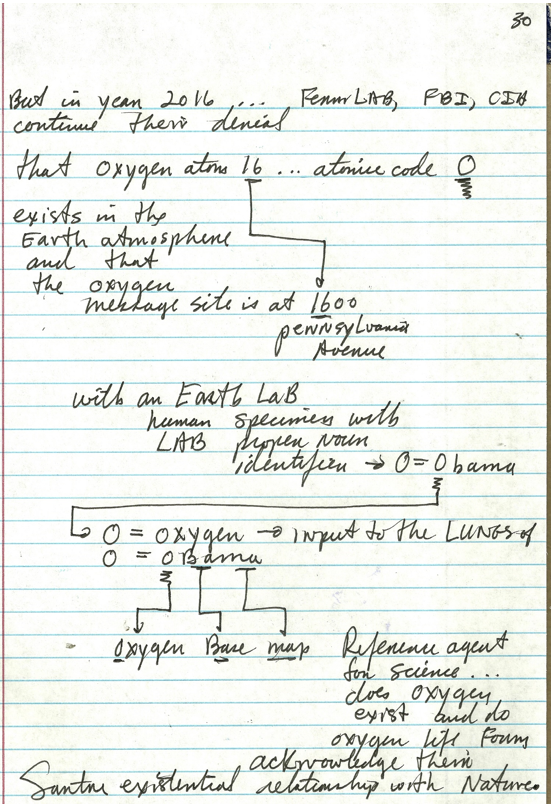 30
But in year 2016 .... FermLAB, FBI, CIA
continue their denial
that oxygen atoms 16 ... atomic code O
exists in the
Earth atmosphere
and that
the oxygen
message site is at 1600
pennsylvania
Avenue
with an Earth LaB
human specimen with
LAB proper noun
identifier → O=Obama
O = oxygen → input to the LUNGS of
O = OBama
oxygen Base map Reference agent
for science...
does oxygen
exist and do
oxygen life Forms
acknowledge their
Santra existential relationship with Nature